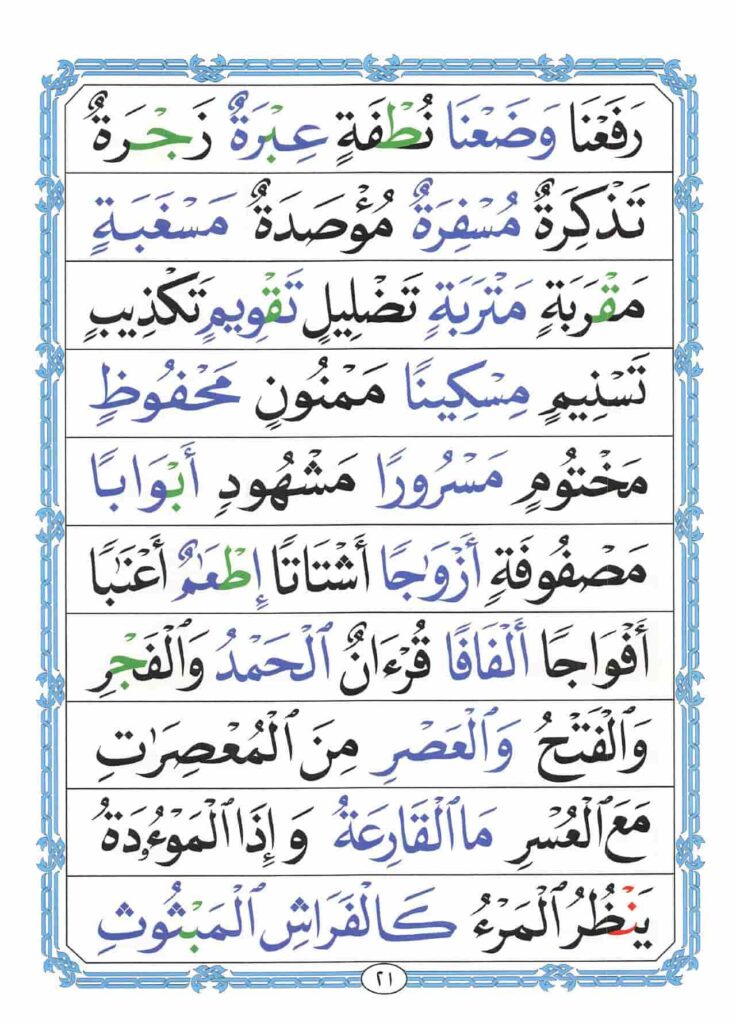 رَفَعْنَا وَضَعْنَا نُطْفَةٍ عِبْرَةٌ زَجْرَةٌ
تَذْكِرَةٌ مُسْفِرَةٌ مُؤْصَدَةٌ مَسْغَبَةٍ
مَقْرَبَةٍ مَتْرَبَةٍ تَضْلِيلٍ تَقْوِيمٍ تَكْذِيبٍ
تَسْنِيمٍ مِسْكِينًا مَمْنُونٍ مَحْفُوظٍ
مَخْتُومٍ مَسْرُورًا مَشْهُودٍ أَبْوَابًا
مَصْفُوفَةٍ أَزْوَٰجًا أَشْتَاتًا إِطْعَٰمٌ أَعْنَٰبًا
أَفْوَاجًا أَلْفَافًا قُرْءَانٌ ٱلْحَمْدُ وَٱلْفَجْرِ
وَٱلْفَتْحُ وَٱلْعَصْرِ مِنَ ٱلْمُعْصِرَٰتِ
مَعَ ٱلْعُسْرِ مَا ٱلْقَارِعَةُ وَإِذَا ٱلْمَوْءُۥدَةُ
يَنْظُرُ ٱلْمَرْءُ كَٱلْفَرَاشِ ٱلْمَبْثُوثِ
٢١